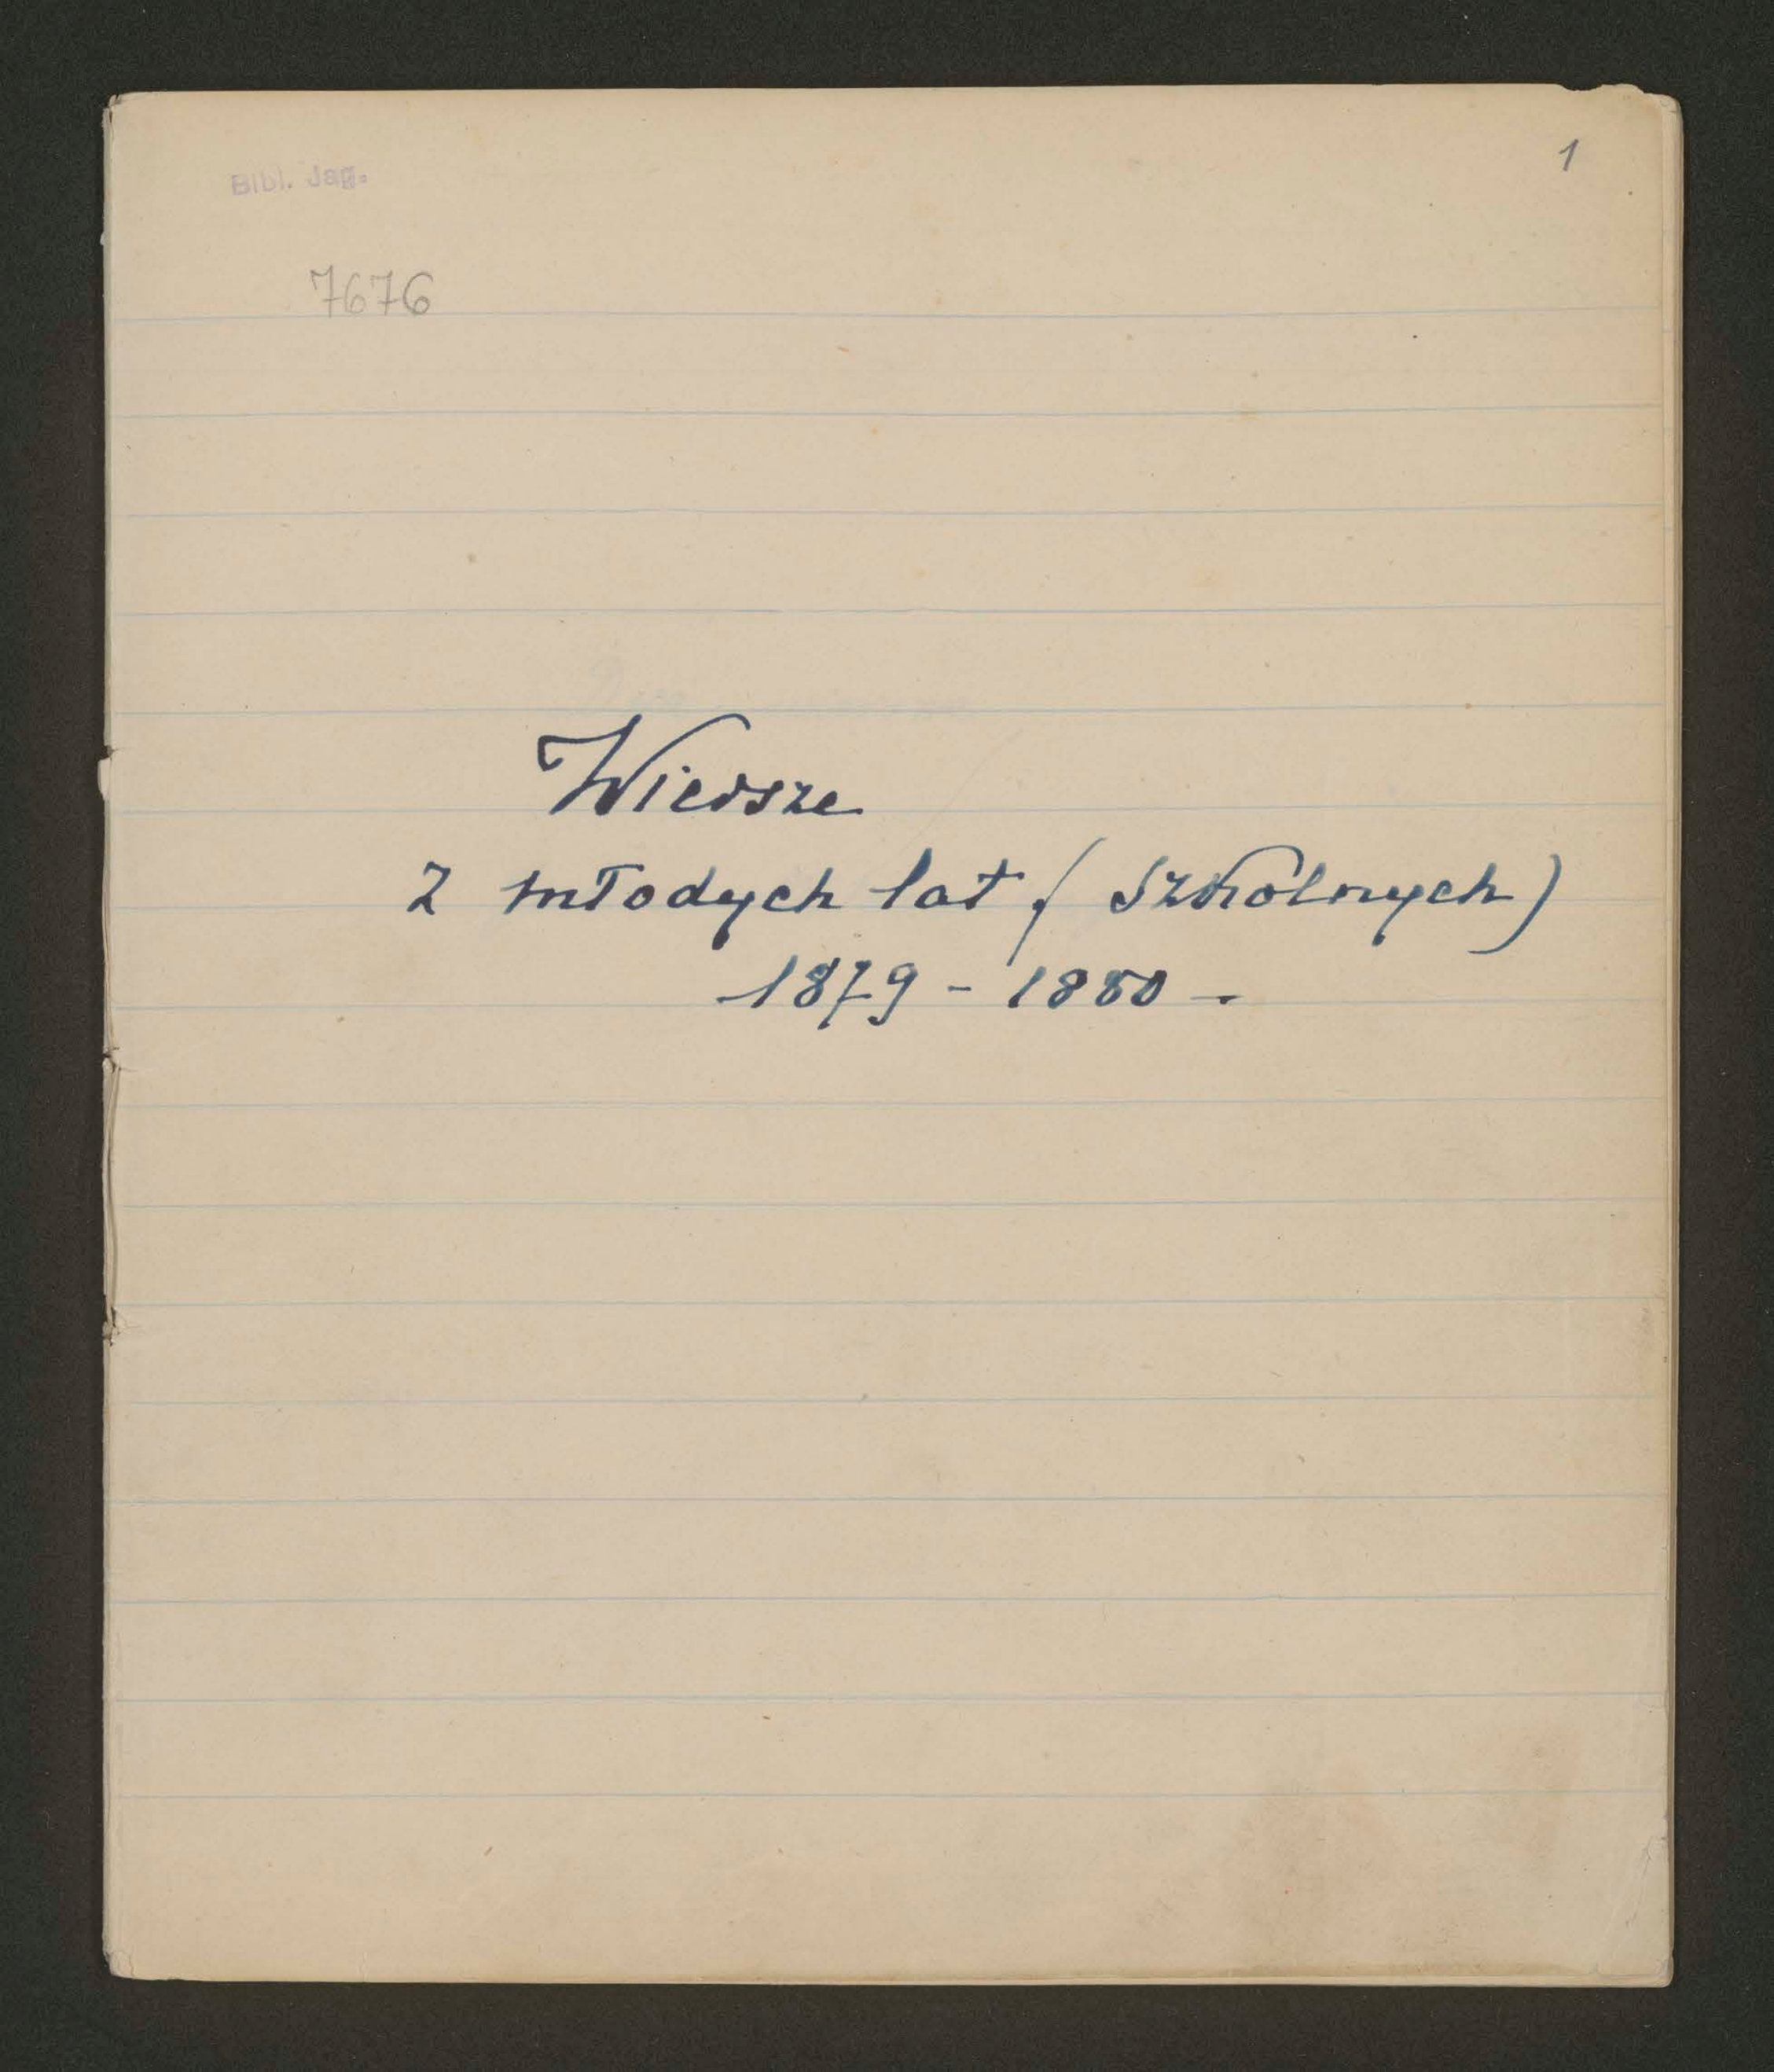 Bibl. Jag.
1
7676
Wiersze
z młodych lat (szkolnych)
1879 - 1880 -